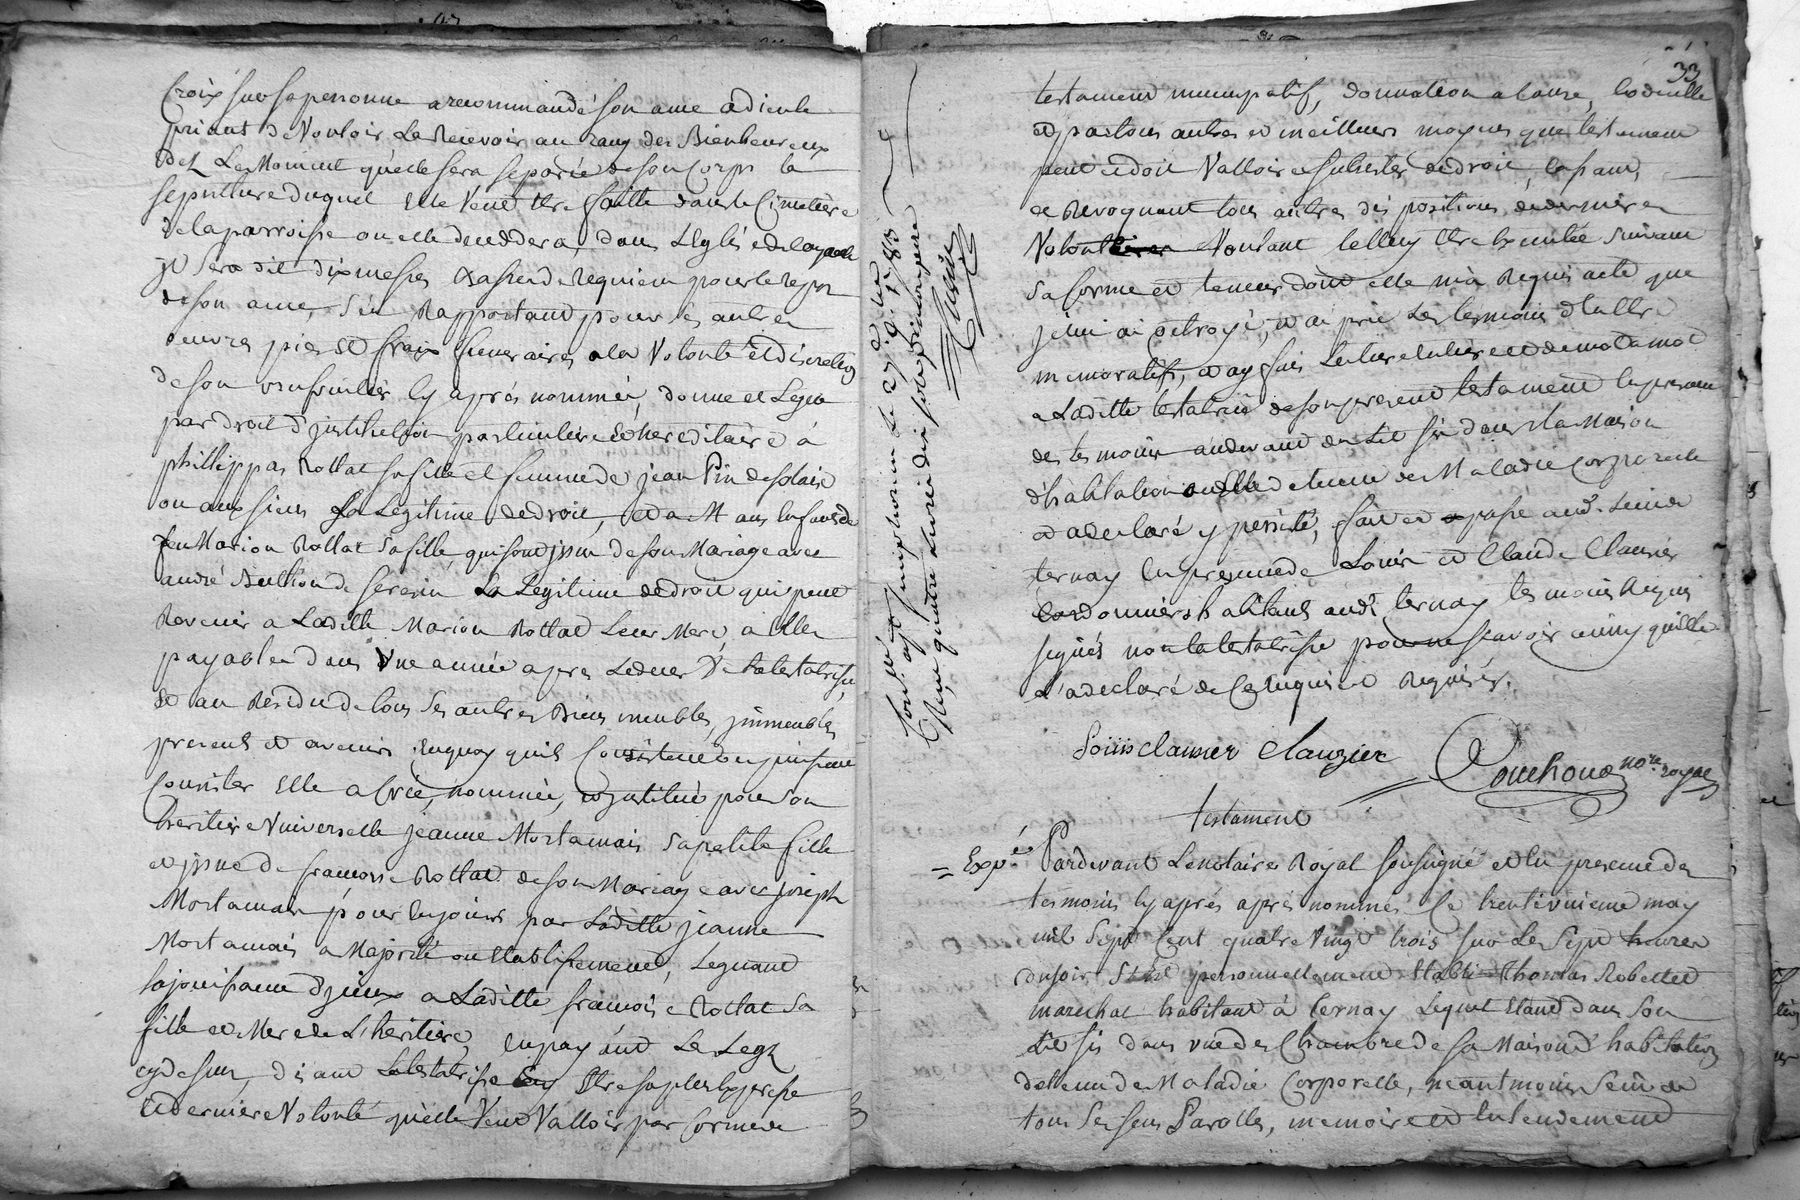 Croix sur sa personne a recommandé son ame a dieu le
priant de Vouloir La Recevoir au rang des Bienheureux
dez Le Moment quelle sera separée de son Corps la
sepulture duquel Elle Veut Etre faitte dans le Cimetiere
de la parroisse ou elle deceddera, dans L'Eglise de laquelle
il sera dit dix messes basses de Requiem pour le repos
de son ame, s'en Rapportant pour ses autres
oeuvres pies et fraix funeraires a la Volonté et discretion
de son usufruitiere cy aprés nommée, donne et Legue
par droit d'institution particuliere et hereditaire à
phillippa Rollat sa fille et femme de jean Pin de solaise
ou aux siens La Legitime de droit, et a M aux Enfants de
feu Marion Rollat sa fille, qui sont issus de son Mariage avec
andré de serezin La Legitime de droit qui peut
Revenir a Laditte Marion Rollat Leur Mere, a Elle
payable dans Une année apres Le decez de la testatrisse,
et au Residu de tous ses autres Biens meubles, jmmeubles
presents et avenir Enquoy quils Consistent ou puissent
Consister Elle a Crée, nommée, et jnstitué pour son
heritiere Universelle jeanne Mortamais sa petite fille
et jssue de francoise Rollat de son Mariage avec joseph
Mortamais pour Enjouir par Laditte jeanne
Mortamais a Majorité ou Etablissement, Leguant
la jouissance d'jceux a Laditte francoise Rollat sa
fille et Mere de L'heritiere, En payant Les Legz
cy dessus, disant La testatrisse Etre sa plus Expresse
et derniere Volonté quelle Veut Valloir par forme de
con.lé et insinué le 27
aoust 1783
Reçu quatre livres dix sols
33
testament nuncupatif, donnation a cause, Codicille
et par tous autres et meilleurs moyens que testament
peut et doit Valloir et subsister de droit, Cassant,
et Revoquant tous autres dispositions de derniere
Volonté Voulant Celluy Etre Executée suivant
sa forme et teneur dont elle m'a Requis acte que
je lui ai octroyé, et ai prié Les temoins d'Etre
memoratifs, et ay fait Lecture entiere et de mot a mot
a Laditte testatrice de son present testament En presence
des temoins au devant de son Lit sis dans sa Maison
d'habitation ou Elle detenue de Maladie Corporelle
et a declaré y persister, fait et passé aud. Lieu de
ternay En presence de Louis et Claude Clauzier
Cordonniers habitants aud. ternay temoins Requis
signés non la testatrisse pour ne scavoir ainsy quelle
l'a declaré de Ce Enquise et Requise.
Louis clauzier Clauzier Couchoud no.re royal
testament
= Exp.é Pardevant Le notaire Royal soussigné et En presence des
temoins cy aprés aprés nommés Ce trentiunieme may
mil Sept Cent quatre Vingt trois sur Les Sept heures
du soir S'est personnellement Etabli Thomas Robellet
marechal habitant à ternay Lequel Etant dans son
Lit sis dans une des Chambre de sa Maison d'habitation
detenu de Maladie Corporelle, neantmoins Sein de
tous Ses sens Parolles, memoire et Entendement